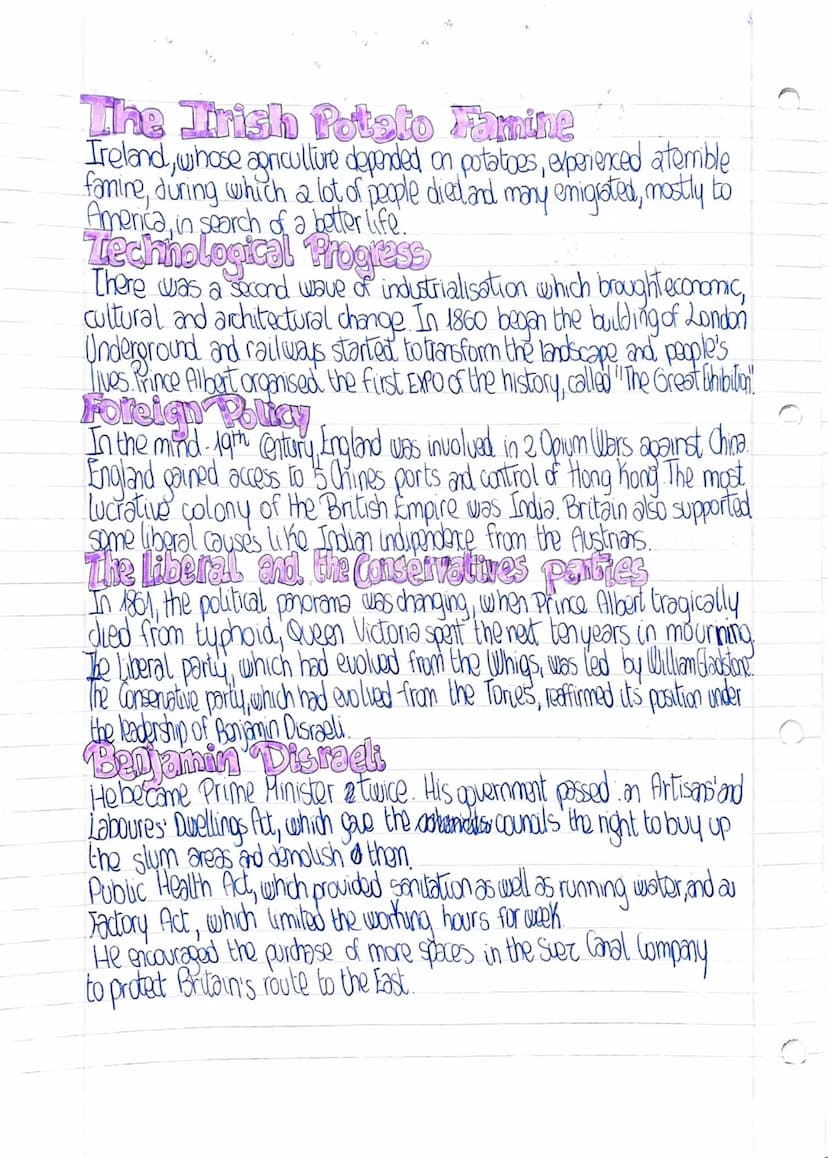 The Irish Potato Famine
Ireland, whose agriculture depended on potatoes, experienced a terrible
famine, during which a lot of people died, and many emigrated, mostly to
America, in search of a better life.
Technological Progress
There was a second wave of industrialisation which brought economic,
cultural and architectural change. In 1860 began the building of London
Underground and railways started to transform the landscape and people's
lives. Prince Albert organised the first EXPO of the history, called "The Great Exhibition".
Foreign Policy
In the mind-19th century, England was involved in 2 Opium Wars against China.
England gained access to 5 Chines ports and control of Hong Kong. The most
lucrative colony of the British Empire was India. Britain also supported
some liberal causes like Indian indipendence from the Austrians.
The Liberal and the Conservatives parties
In 1861, the political panorama was changing, when Prince Albert tragically
died from typhoid, Queen Victoria spent the next ten years in mourning.
The Liberal party, which had evolved from the Whigs, was led by William Gladstone.
The Conservative party, which had evolved from the Tories, reaffirmed its position under
the leadership of Benjamin Disraeli.
Benjamin Disraeli
He became Prime Minister twice. His government passed an Artisans' and
Laboures' Dwellings Act, which gave the councils the right to buy up
the slum areas and demolish them.
Public Health Act, which provided sanitation as well as running water, and a
Factory Act, which limited the working hours for week
He encouraged the purchase of more spaces in the Suez Canal Company
to protect Britain's route to the East.